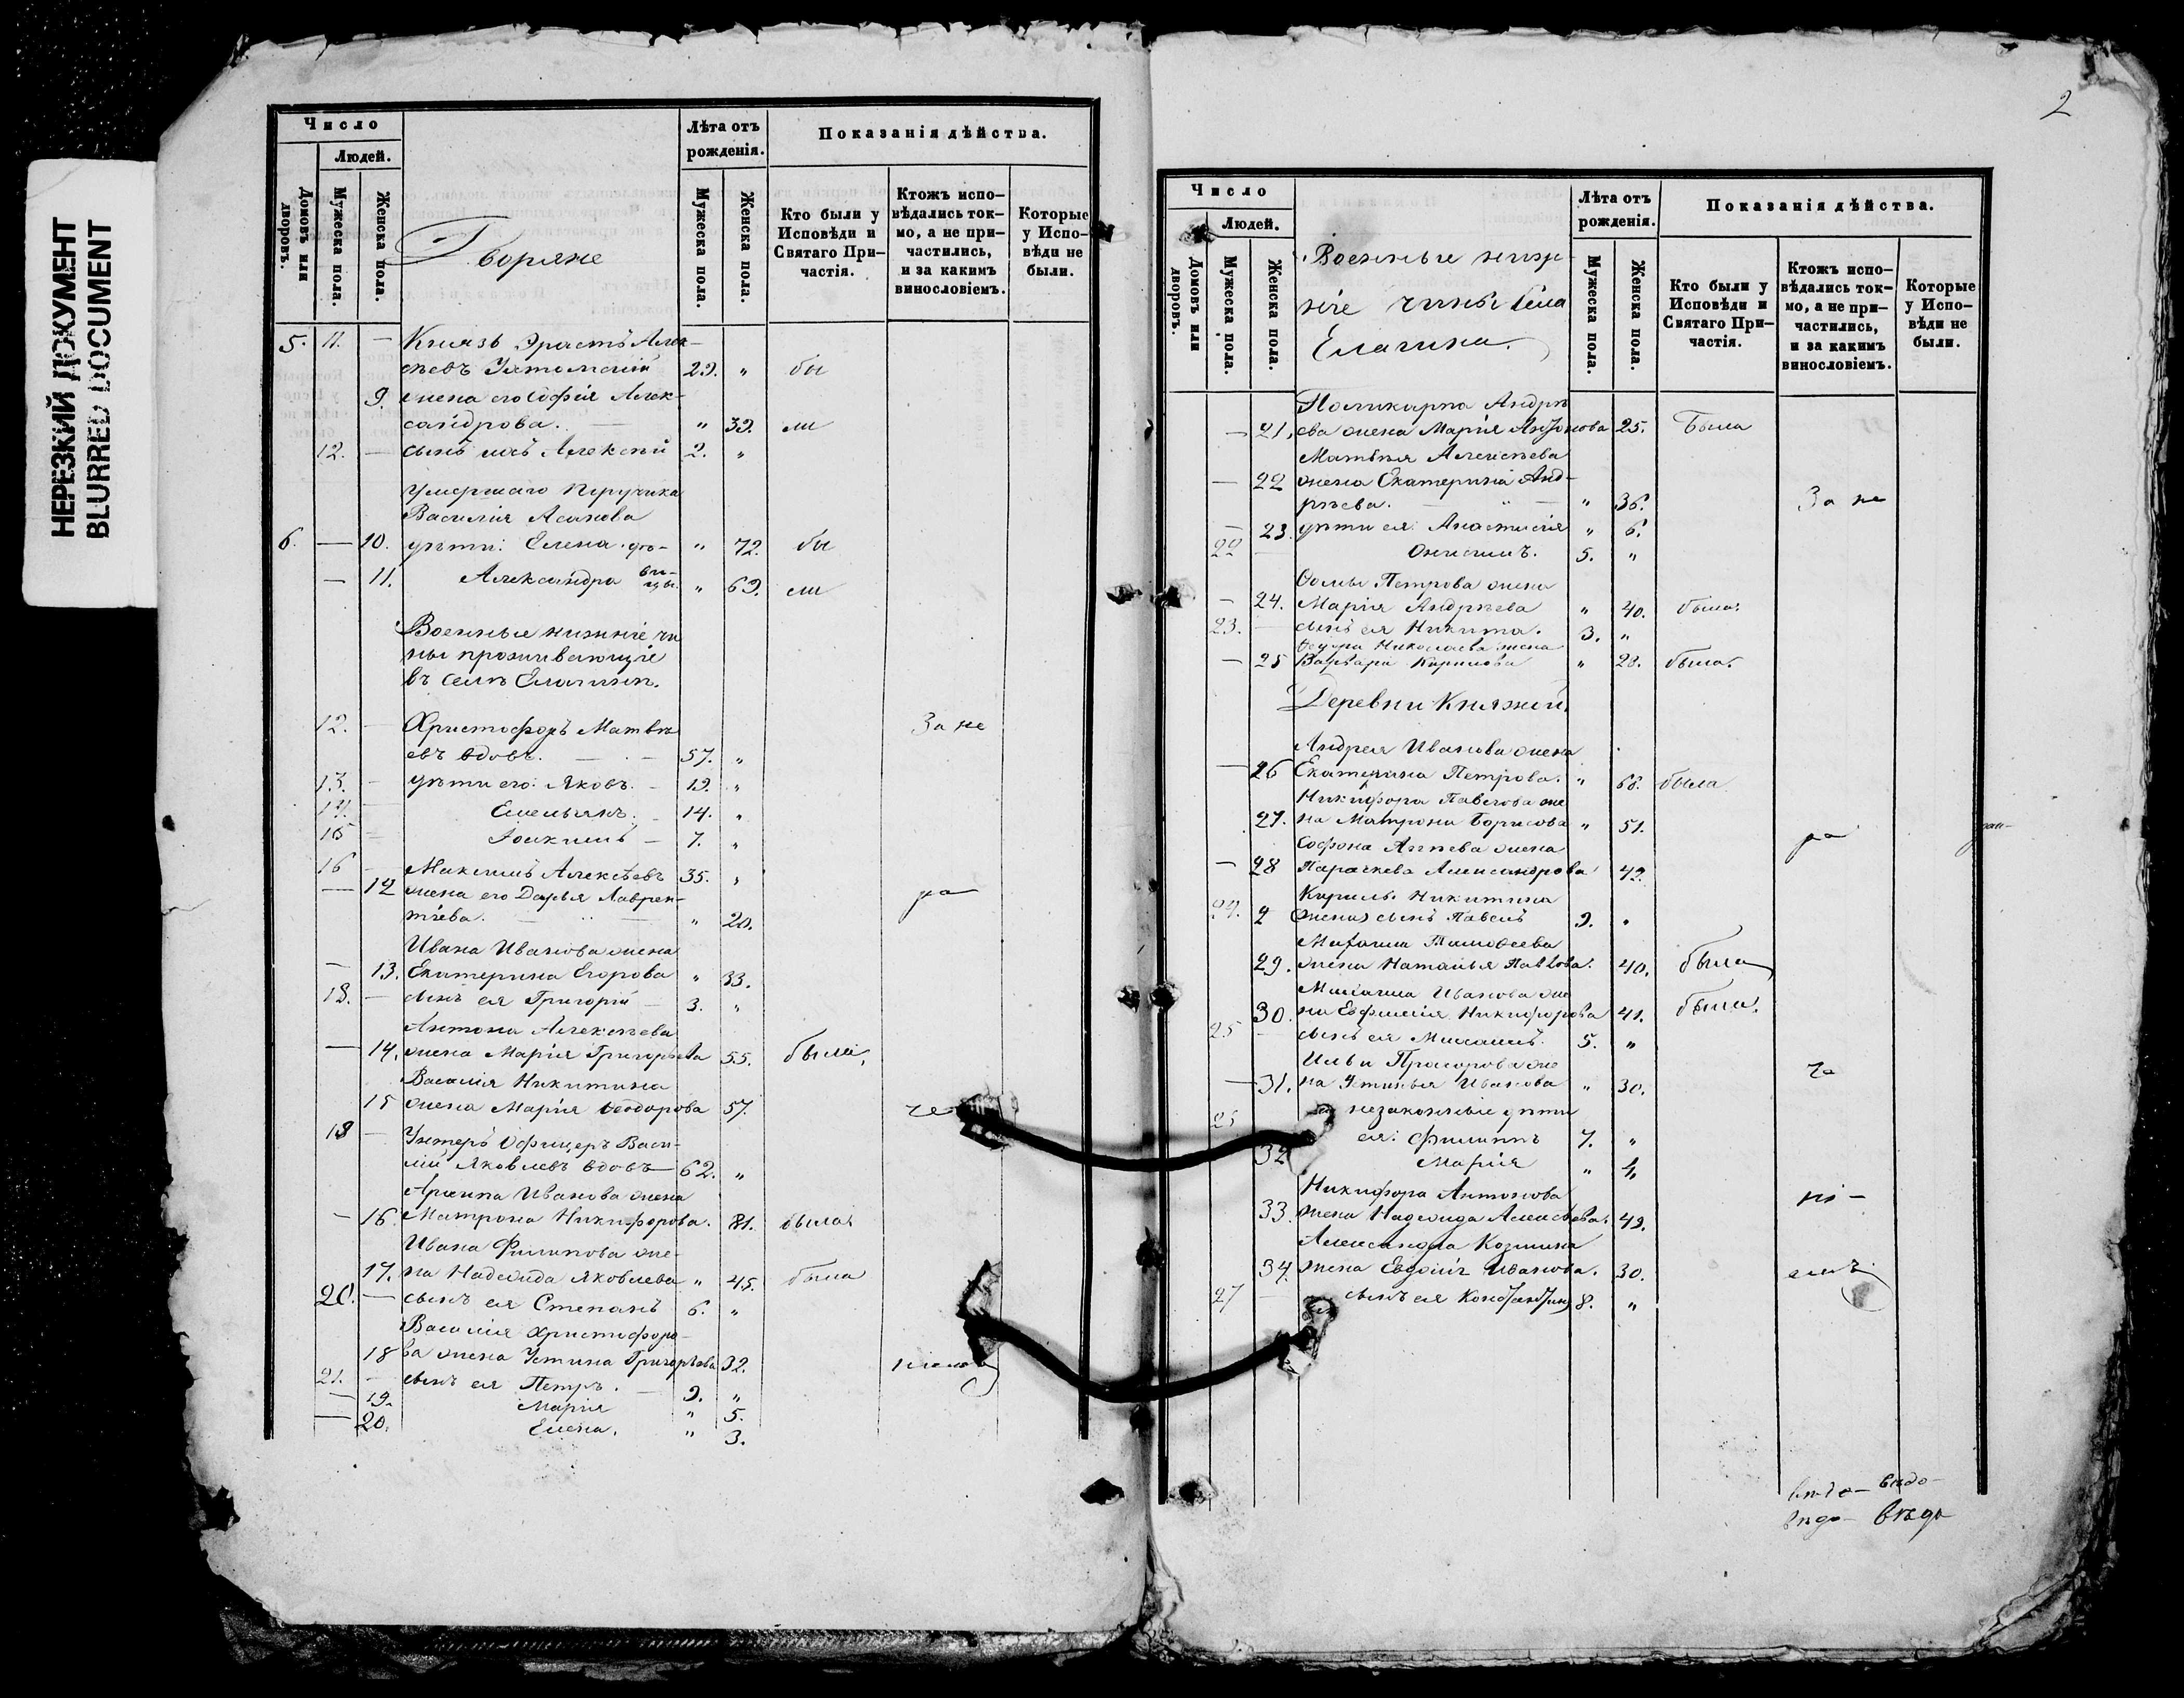 НЕРЕЗКИЙ ДОКУМЕНТ
BLURRED DOCUMENT
Число
Людей.
Домовъ или дворовъ.
Мужеска пола.
Женска пола.
Дворяне
Лѣта отъ рожденія.
Мужеска пола.
Женска пола.
Показанія дѣйства.
Кто были у Исповѣди и Святаго Причастія.
Ктожъ исповѣдались токмо, а не причастились, и за какимъ винословіемъ.
Которые у Исповѣди не были.
5. 11. — Князь Эрастъ Алек-
сѣевъ Ухтомскій 29. " бы
9. жена его Софія Алек-
сандрова. — " 39. ли
12. — сынъ ихъ Алексѣй 2. "
Умершаго Поручика
Василія Асанова
6. — 10. дѣти: Елена дѣ- " 72. бы
— 11. Александра ви-цы. " 69. ли
Военные нижніе чи
ны проживающіе
въ селѣ Елагинѣ.
12. — Христофоръ Матвѣ За не
евъ вдовъ. — 57. "
13. — дѣти его: Яковъ. — 19. "
14. — Емельянъ. — 14. "
15 — Іоакимъ — 7. "
16 — Максимъ Алексѣевъ 35. "
— 12 жена его Дарья Лаврен- ра
тіева. — " 20.
Ивана Иванова жена
— 13. Екатерина Егорова " 33.
18. — сынъ ея Григорій — 3. "
Антона Алексѣева
— 14. жена Марія Григорьева 55. была.
Василія Никитина
15 жена Марія Ѳеодорова 57. че
18 — Унтеръ Офицеръ Васи-
лій Яковлевъ вдовъ — 62. "
Архипа Иванова жена
— 16. Матрона Никифорова. 81. была.
Ивана Филипова же-
17. на Надежда Яковлева " 45. была
20. — сынъ ея Степанъ 6. "
Василія Христофоро-
18 ва жена Устина Григорьева 32.
21. — сынъ ея Петръ. — 9. "
— 19. Марія " 5.
— 20. Елена. " 3.
2
Число
Людей.
Домовъ или дворовъ.
Мужеска пола.
Женска пола.
Военные ниж-
ніе чины села
Елагина.
Лѣта отъ рожденія.
Мужеска пола.
Женска пола.
Показанія дѣйства.
Кто были у Исповѣди и Святаго Причастія.
Ктожъ исповѣдались токмо, а не причастились, и за какимъ винословіемъ.
Которые у Исповѣди не были.
Поликарпа Андрѣ
— 21. ева жена Марія Антонова 25. Была
Матвѣя Алексѣева
— 22 жена Екатерина Анд-
рѣева. — " 36. За не
— 23. дѣти ея: Анастасія " 6.
22 — Онисимъ. 5. "
Ѳомы Петрова жена
— 24. Марія Андрѣева " 40. была.
23. — сынъ ея Никита. 3. "
Ѳедора Николаева жена
— 25 Варвара Кирилова " 28. была.
Деревни Княжей.
Андрея Иванова жена
— 26 Екатерина Петрова. " 68. была
Никифора Павлова же
27. на Матрона Борисова " 51. ра
Софона жена
— 28 Параскева Александрова 42.
Кирила Никитина
24. 2 жена сынъ Павелъ 9. "
Тимоѳеева
29. жена Наталья Павлова. 40. была
Михаила Иванова же
30. на Евфимія Никифорова 41. была.
25 — сынъ ея Михаилъ. 5. "
Ильи Прохорова же че
— 31. на Устинья Иванова " 30.
незаконные дѣти
ея: Филиппъ 7. "
32 Марія " 4
Никифора Антонова ні-
33. жена Надежда Алексѣева. 49.
Александра Козмина
34. жена Евдокія Иванова. 30. емъ
27 — сынъ ея Константинъ 8. "
вѣдо-
вѣдо